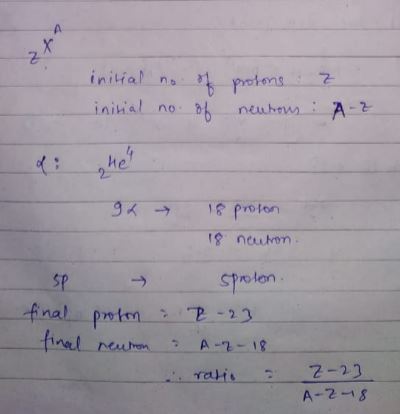 zXᴬ
initial no. of protons : Z
initial no. of neutrons : A-Z
α : ₂He⁴
9α → 18 proton
18 neutron.
5p → 5proton.
final proton = Z-23
final neutron = A-Z-18
∴ ratio = Z-23 / A-Z-18